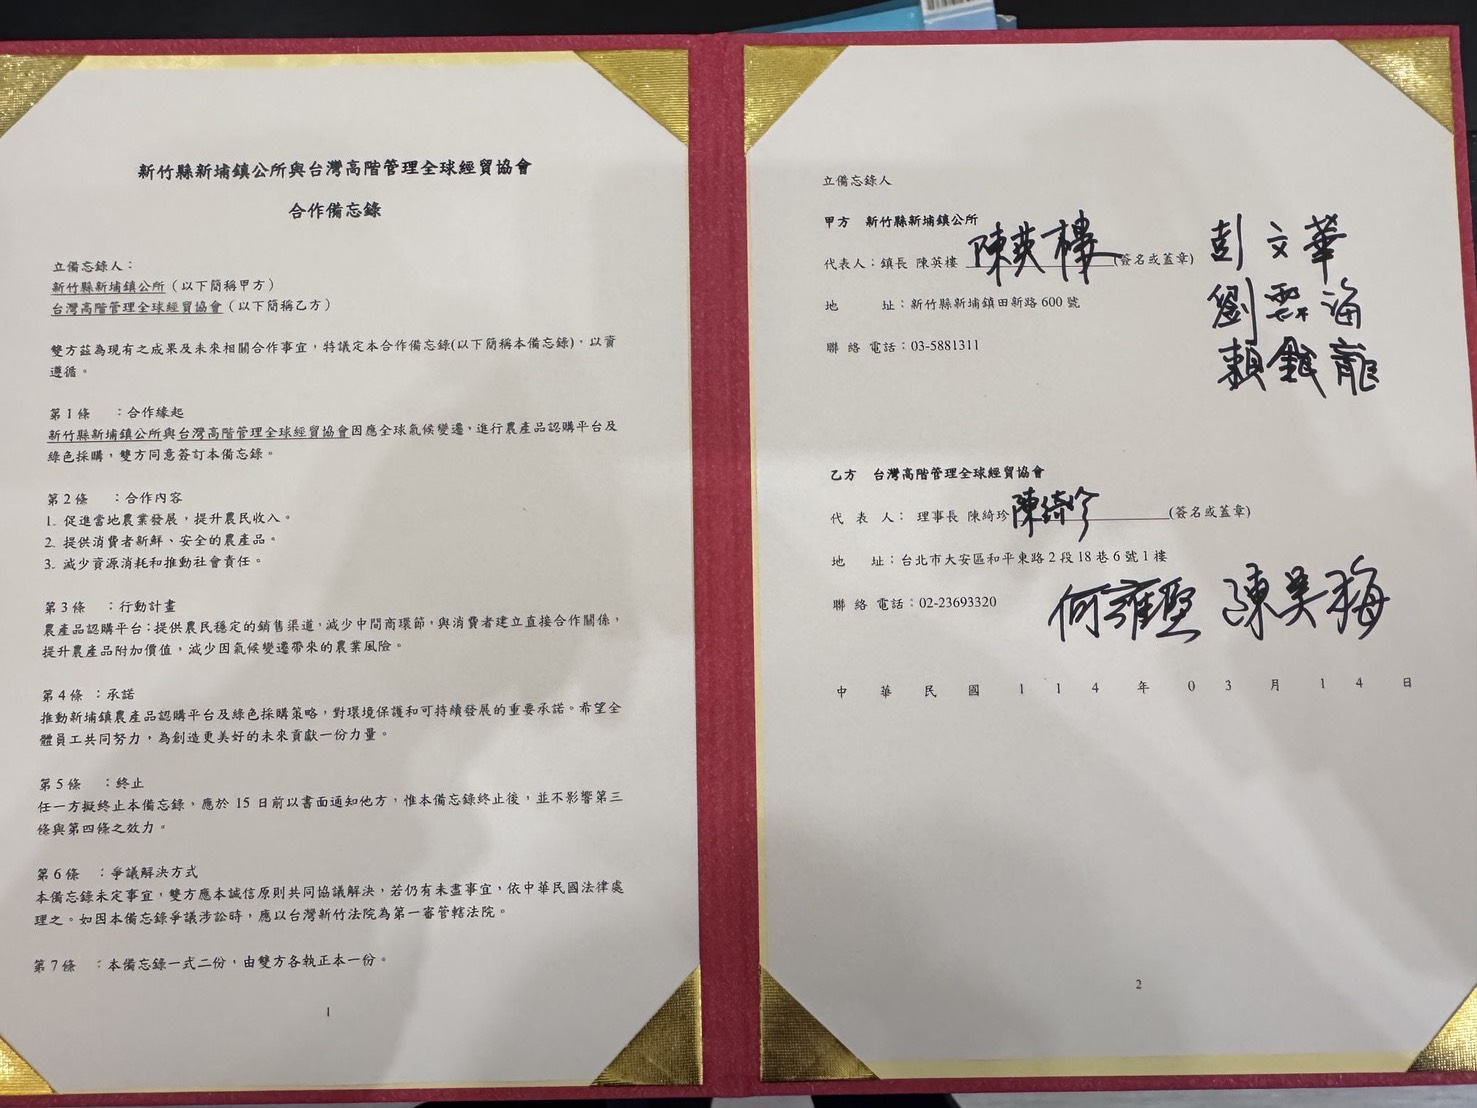 新竹縣新埔鎮公所與台灣高階管理全球經貿協會
合作備忘錄
立備忘錄人：
新竹縣新埔鎮公所（以下簡稱甲方）
台灣高階管理全球經貿協會（以下簡稱乙方）
雙方茲為現有之成果及未來相關合作事宜，特議定本合作備忘錄(以下簡稱本備忘錄)，以資
遵循。
第1條 ：合作緣起
新竹縣新埔鎮公所與台灣高階管理全球經貿協會因應全球氣候變遷，進行農產品認購平台及
綠色採購，雙方同意簽訂本備忘錄。
第2條 ：合作內容
1. 促進當地農業發展，提升農民收入。
2. 提供消費者新鮮、安全的農產品。
3. 減少資源消耗和推動社會責任。
第3條 ：行動計畫
農產品認購平台：提供農民穩定的銷售渠道，減少中間商環節，與消費者建立直接合作關係，
提升農產品附加價值，減少因氣候變遷帶來的農業風險。
第4條 ：承諾
推動新埔鎮農產品認購平台及綠色採購策略，對環境保護和可持續發展的重要承諾。希望全
體員工共同努力，為創造更美好的未來貢獻一份力量。
第5條 ：終止
任一方擬終止本備忘錄，應於 15 日前以書面通知他方，惟本備忘錄終止後，並不影響第三
條與第四條之效力。
第6條 ：爭議解決方式
本備忘錄未定事宜，雙方應本誠信原則共同協議解決，若仍有未盡事宜，依中華民國法律處
理之。如因本備忘錄爭議涉訟時，應以台灣新竹法院為第一審管轄法院。
第7條 ：本備忘錄一式二份，由雙方各執正本一份。
1
立備忘錄人
甲方 新竹縣新埔鎮公所
代表人：鎮長 陳英樓 陳英樓 (簽名或蓋章)
彭文華
地 址：新竹縣新埔鎮田新路 600 號
劉雲海
聯 絡 電話：03-5881311
賴銀龍
乙方 台灣高階管理全球經貿協會
代 表 人： 理事長 陳綺珍 陳綺珍 (簽名或蓋章)
地 址：台北市大安區和平東路 2 段 18 巷 6 號 1 樓
聯 絡 電話：02-23693320
何雍堅 陳吳梅
中 華 民 國 1 1 4 年 0 3 月 1 4 日
2